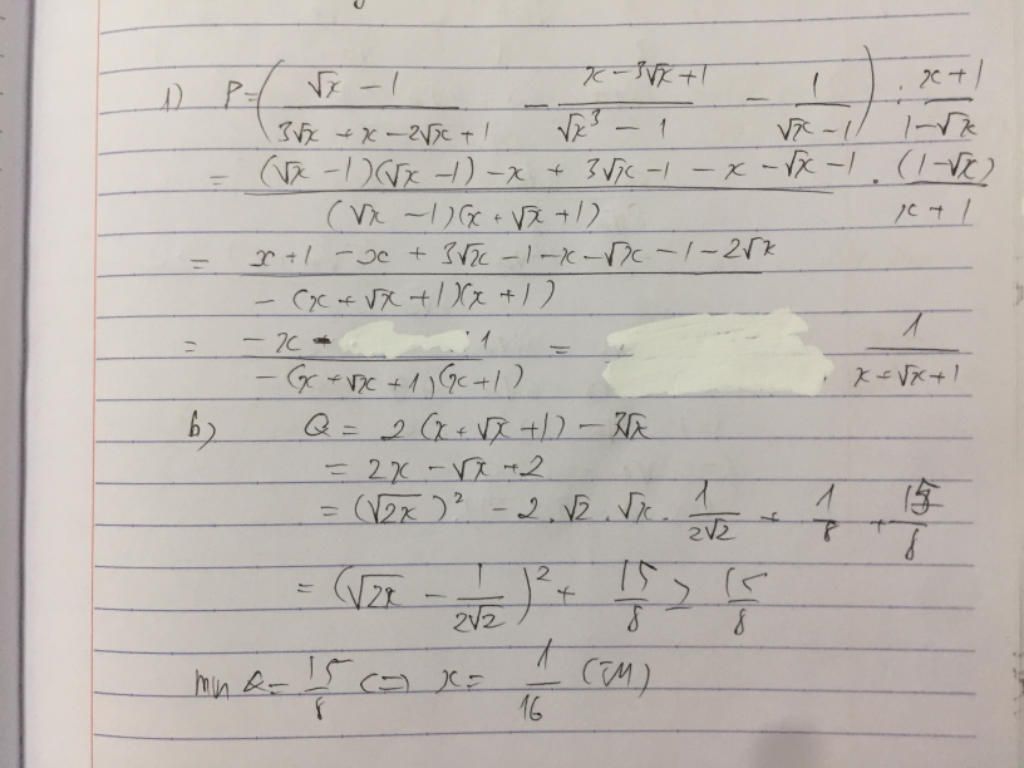 1) P = ( (√x - 1)/(3√x + x - 2√x + 1) - (x - 3√x + 1)/(√x³ - 1) - 1/(√x - 1) ) : (x + 1)/(1 - √x)
= ((√x - 1)(√x - 1) - x + 3√x - 1 - x - √x - 1)/((√x - 1)(x + √x + 1)) . (1 - √x)/(x + 1)
= (x + 1 - x + 3√x - 1 - x - √x - 1 - 2√x)/(-(x + √x + 1)(x + 1))
= (-x - 1)/(-(x + √x + 1)(x + 1)) = 1/(x + √x + 1)
b) Q = 2(x + √x + 1) - 3√x
= 2x - √x + 2
= (√2x)² - 2.√2.√x. 1/(2√2) + 1/8 + 15/8
= (√2x - 1/(2√2))² + 15/8 ≥ 15/8
min Q = 15/8 <=> x = 1/16 (TM)